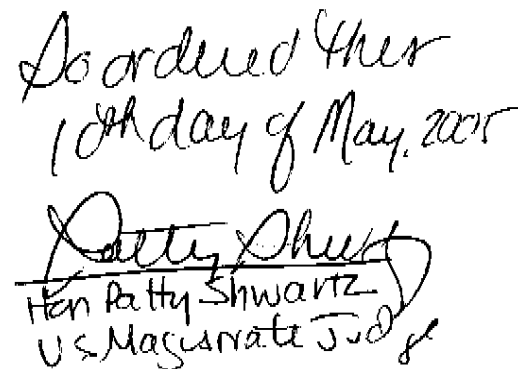 So ordered this
10th day of May, 2005
Patty Shwartz
Hon Patty Shwartz
US Magistrate Judge